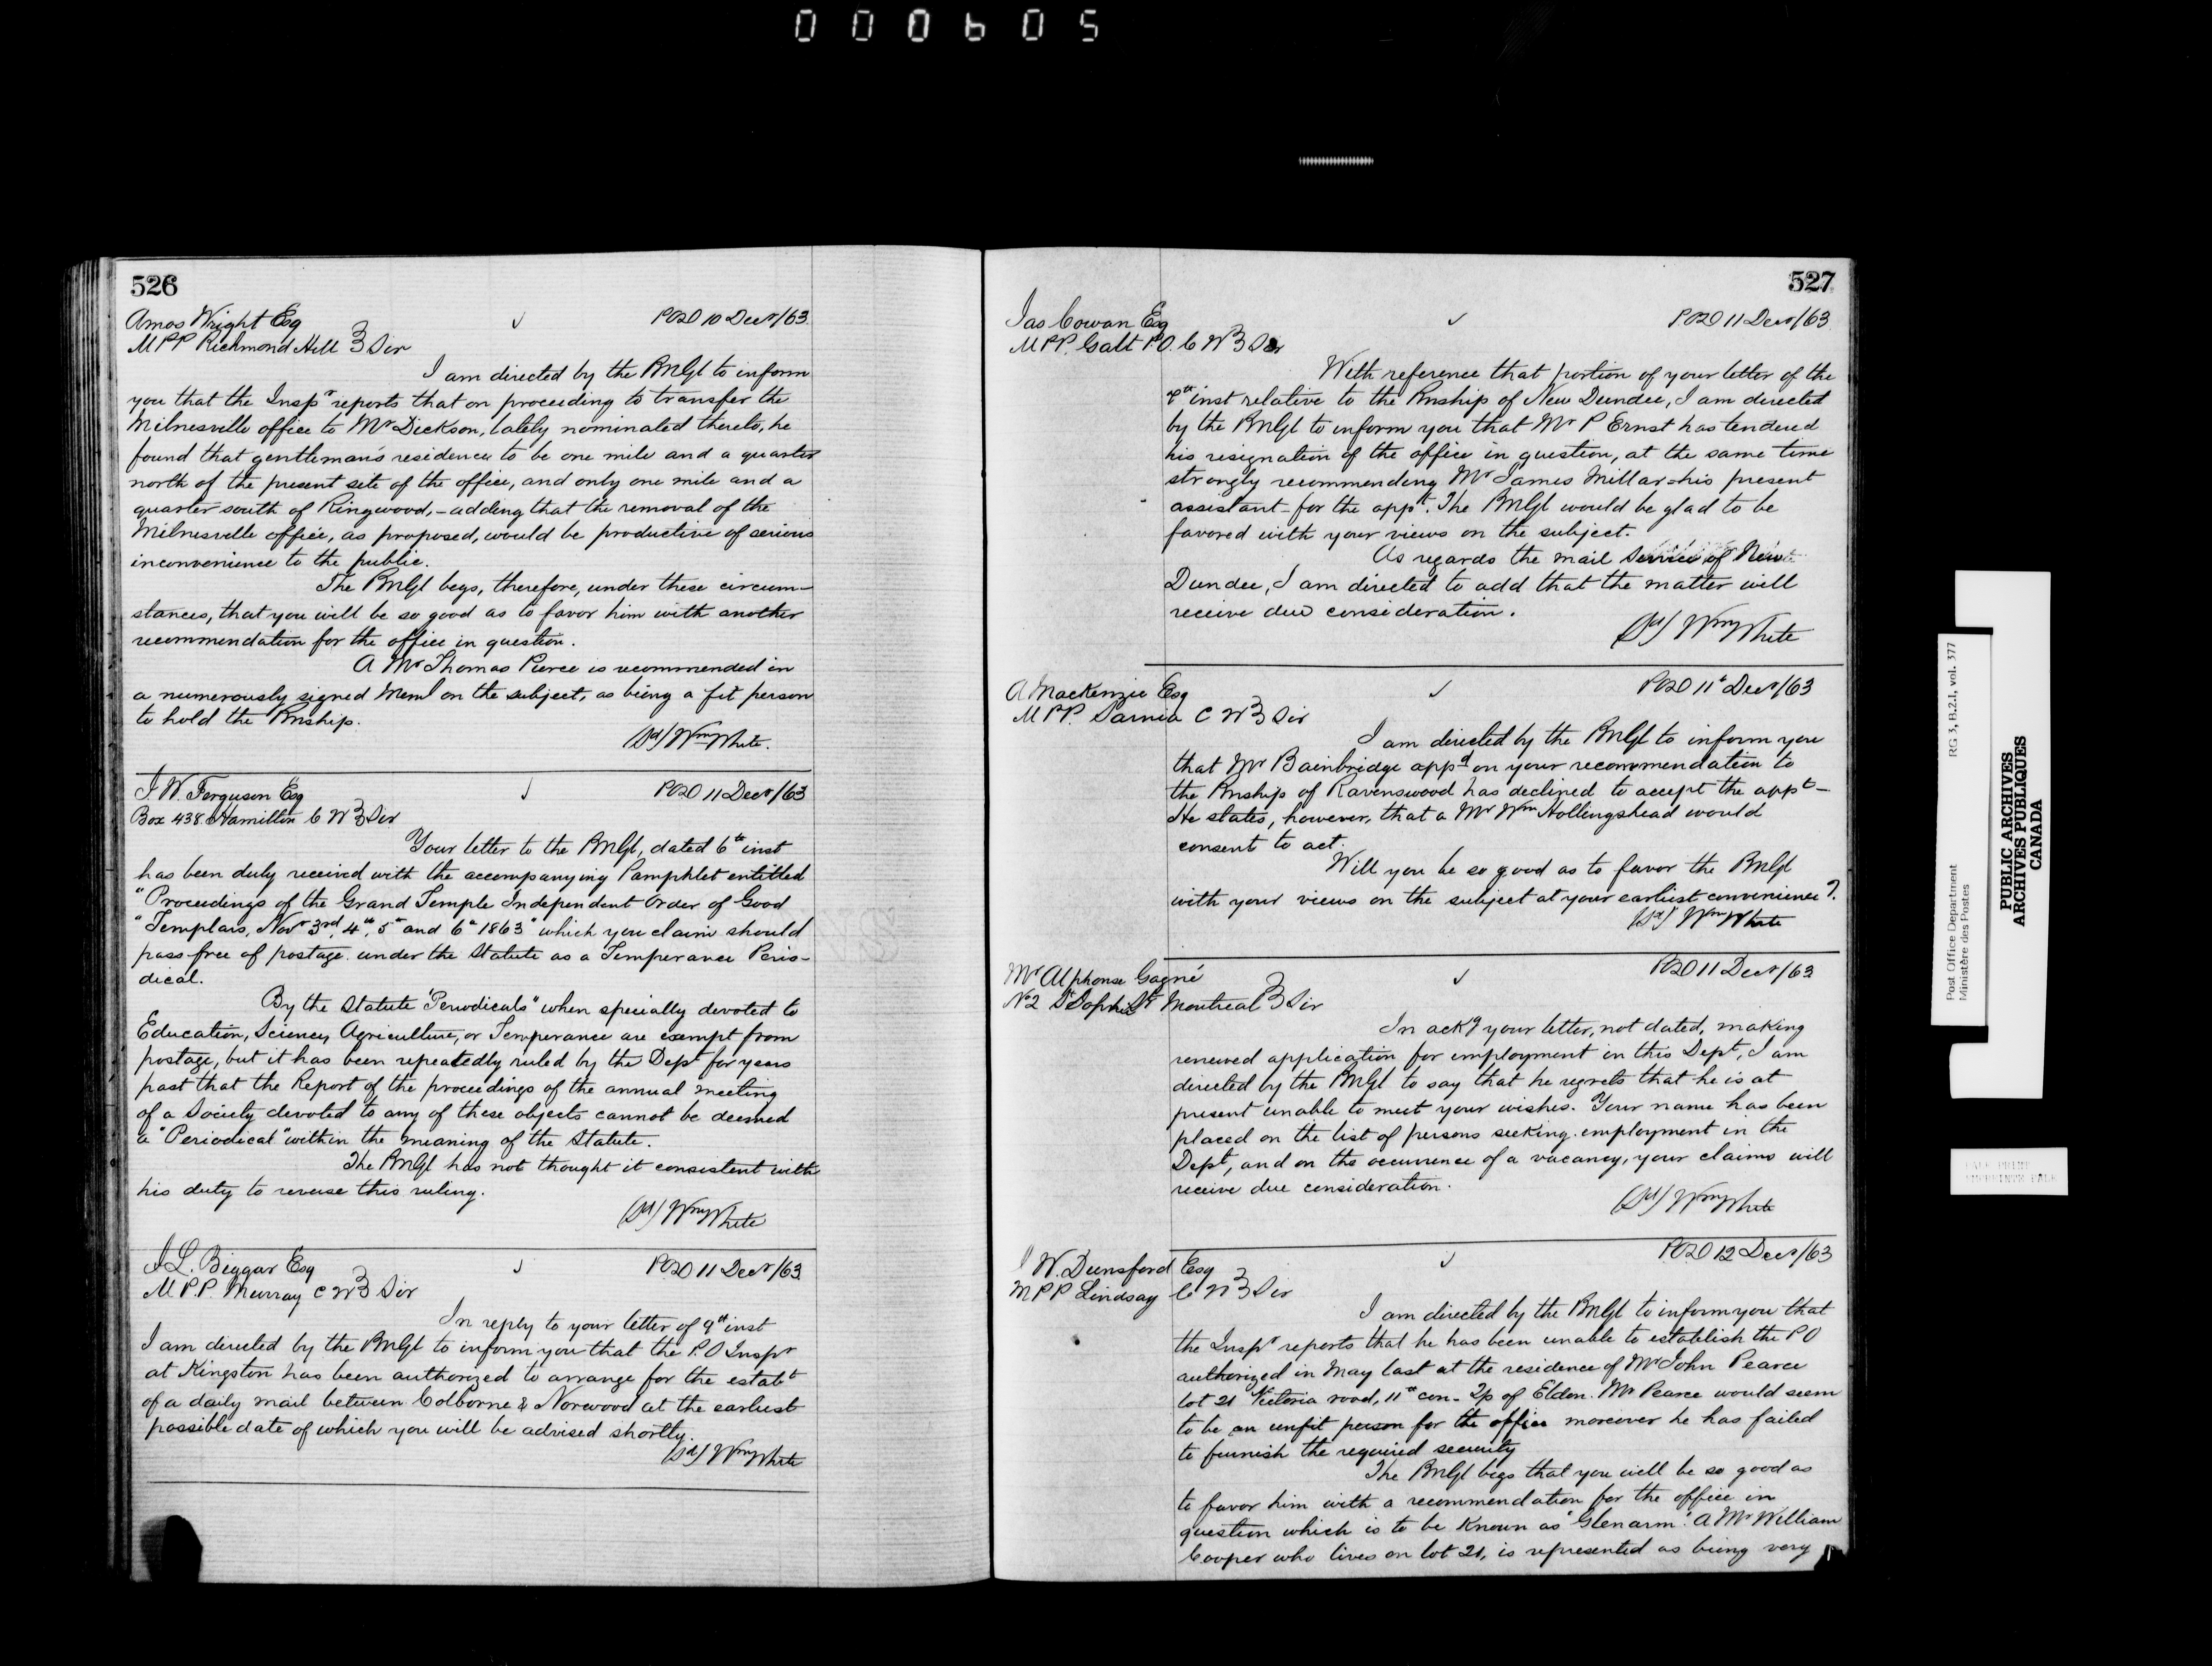 000605
526
Amos Wright Esq
POD 10 Decr/63
MPP Richmond Hill } Sir
I am directed by the PMGl to inform
you that the Inspr reports that on proceeding to transfer the
Milnesville office to Mr Dickson, lately nominated thereto, he
found that gentleman's residence to be one mile and a quarter
north of the present site of the office, and only one mile and a
quarter south of Ringwood, - adding that the removal of the
Milnesville office, as proposed, would be productive of serious
inconvenience to the public.
The PMGl begs, therefore, under these circum-
stances, that you will be so good as to favor him with another
recommendation for the office in question.
A Mr Thomas Pierce is recommended in
a numerously signed Meml on the subject, as being a fit person
to hold the Pmship.
(Sd) Wm White.
J. W. Ferguson Esq
POD 11 Decr/63
Box 438 Hamilton C W } Sir
Your letter to the PMGl, dated 6th inst
has been duly received with the accompanying Pamphlet entitled
"Proceedings of the Grand Temple Independent Order of Good
"Templars, Novr 3rd, 4th, 5th and 6th 1863" which you claim should
pass free of postage under the Statute as a Temperance Perio-
dical.
By the Statute "Periodicals" when specially devoted to
Education, Science, Agriculture, or Temperance are exempt from
postage, but it has been repeatedly ruled by the Dept for years
past that the Report of the proceedings of the annual meeting
of a Society devoted to any of these objects cannot be deemed
a "Periodical" within the meaning of the Statute.
The PMGl has not thought it consistent with
his duty to reverse this ruling.
(Sd) Wm White
J L. Biggar Esq
POD 11 Decr/63
M P.P. Murray C W } Sir
In reply to your letter of 9th inst
I am directed by the PMGl to inform you that the P.O Inspr
at Kingston has been authorized to arrange for the estabt
of a daily mail between Colborne & Norwood at the earliest
possible date of which you will be advised shortly.
(Sd) Wm White
527
Jas Cowan Esq
POD 11 Decr/63
MPP. Galt P.O. C W } Sir
With reference that portion of your letter of the
inst relative to the Pmship of New Dundee, I am directed
by the PMGl to inform you that Mr P Ernst has tendered
his resignation of the office in question, at the same time
strongly recommending Mr James Millar - his present
assistant - for the appt. The PMGl would be glad to be
favored with your views on the subject.
As regards the mail service of New
Dundee, I am directed to add that the matter will
receive due consideration.
(Sd) Wm White
A Mackenzie Esq
POD 11th Decr/63
MPP. Sarnia C W } Sir
I am directed by the PMGl to inform you
that Mr Bainbridge appd on your recommendation to
the Pmship of Ravenswood has declined to accept the appt -
He states, however, that a Mr Wm Hollingshead would
consent to act.
Will you be so good as to favor the PMGl
with your views on the subject at your earliest convenience?
(Sd) Wm White
Mr Alphonse Gagné
POD 11 Decr/63
No 2 St Sophie St Montreal } Sir
In ackg your letter, not dated, making
renewed application for employment in this Dept, I am
directed by the PMGl to say that he regrets that he is at
present unable to meet your wishes. Your name has been
placed on the list of persons seeking employment in the
Dept, and on the occurrence of a vacancy, your claims will
receive due consideration.
(Sd) Wm White
J W. Dunsford Esq
POD 12 Decr/63
MPP Lindsay C W } Sir
I am directed by the PMGl to inform you that
the Inspr reports that he has been unable to establish the PO
authorized in May last at the residence of Mr John Pearce
lot 21 Victoria road, 11th con - Tp of Eldon. Mr Pearce would seem
to be an unfit person for the office moreover he has failed
to furnish the required security
The PMGl begs that you will be so good as
to favor him with a recommendation for the office in
question which is to be known as "Glenarm". A Mr William
Cooper who lives on lot 21, is represented as being very
Post Office Department RG 3, B.2.1, vol. 377
Ministère des Postes
PUBLIC ARCHIVES
ARCHIVES PUBLIQUES
CANADA